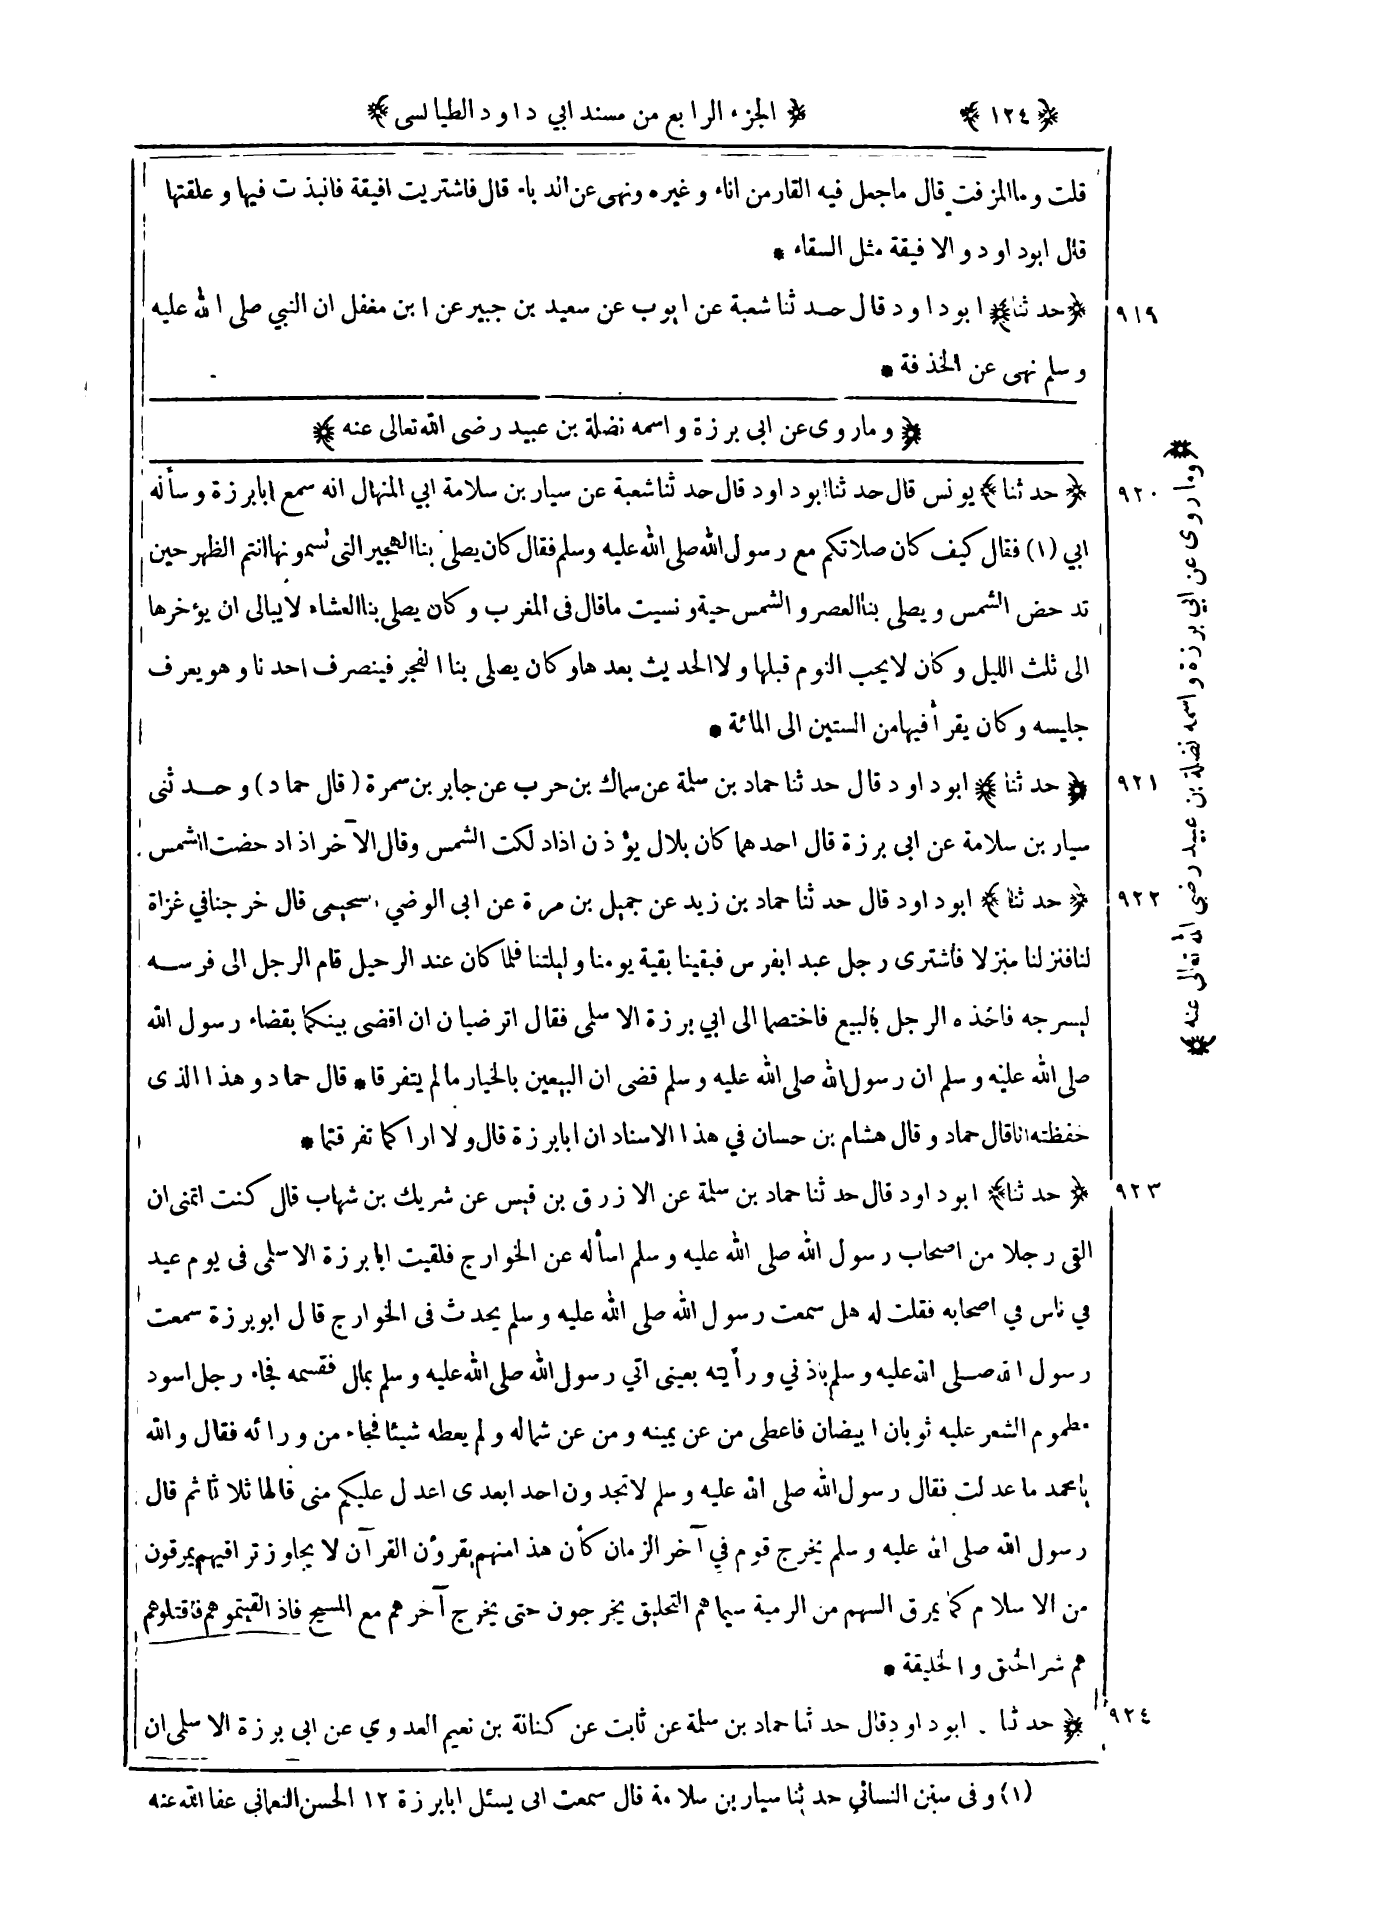 ﴿ ١٢٤ ﴾
﴿ الجزء الرابع من مسند ابي داود الطيالسى ﴾
قلت وما المزفت قال ماجعل فيه القار من اناء وغيره ونهى عن الدباء قال فاشتريت افيقة فانبذت فيها وعلقتها
قال ابوداود والافيقة مثل السقاء *
٩١٩ ﴿ حدثنا ﴾ ابوداود قال حدثنا شعبة عن ايوب عن سعيد بن جبير عن ابن مغفل ان النبي صلى الله عليه
وسلم نهى عن الخذفة *
﴿ وماروى عن ابى برزة واسمه نضلة بن عبيد رضى الله تعالى عنه ﴾
٩٢٠ ﴿ حدثنا ﴾ يونس قال حدثنا ابوداود قال حدثنا شعبة عن سيار بن سلامة ابي المنهال انه سمع ابابرزة وسأله
ابي (١) فقال كيف كان صلاتكم مع رسول الله صلى الله عليه وسلم فقال كان يصلى بنا الهجير التى تسمونها انتم الظهر حين
تدحض الشمس ويصلى بنا العصر والشمس حية ونسيت ماقال فى المغرب وكان يصلى بنا العشاء لايبالى ان يؤخرها
الى ثلث الليل وكان لايحب النوم قبلها ولا الحديث بعدها وكان يصلى بنا الفجر فينصرف احدنا وهو يعرف
جليسه وكان يقرأ فيها من الستين الى المائة *
٩٢١ ﴿ حدثنا ﴾ ابوداود قال حدثنا حماد بن سلمة عن سماك بن حرب عن جابر بن سمرة (قال حماد) وحدثنى
سيار بن سلامة عن ابى برزة قال احدهما كان بلال يؤذن اذا دلكت الشمس وقال الآخر اذا دحضت الشمس
٩٢٢ ﴿ حدثنا ﴾ ابوداود قال حدثنا حماد بن زيد عن جميل بن مرة عن ابى الوضي السحيمى قال خرجنا في غزاة
لنا فنزلنا منزلا فاشترى رجل عبدا بفرس فبقينا بقية يومنا وليلتنا فلما كان عند الرحيل قام الرجل الى فرسه
ليسرجه فاخذه الرجل بالبيع فاختصما الى ابي برزة الاسلمى فقال اترضيان ان اقضى بينكما بقضاء رسول الله
صلى الله عليه وسلم ان رسول الله صلى الله عليه وسلم قضى ان البيعين بالخيار مالم يتفرقا * قال حماد وهذا الذى
حفظته انا قال حماد وقال هشام بن حسان في هذا الاسناد ان ابابرزة قال ولا اراكما تفرقتما *
٩٢٣ ﴿ حدثنا ﴾ ابوداود قال حدثنا حماد بن سلمة عن الازرق بن قيس عن شريك بن شهاب قال كنت اتمنى ان
القى رجلا من اصحاب رسول الله صلى الله عليه وسلم اسأله عن الخوارج فلقيت ابابرزة الاسلمى فى يوم عيد
في ناس في اصحابه فقلت له هل سمعت رسول الله صلى الله عليه وسلم يحدث فى الخوارج قال ابوبرزة سمعت
رسول الله صلى الله عليه وسلم باذني ورأيته بعينى اتي رسول الله صلى الله عليه وسلم بمال فقسمه فجاء رجل اسود
مطموم الشعر عليه ثوبان ابيضان فاعطى من عن يمينه ومن عن شماله ولم يعطه شيئا فجاء من ورائه فقال والله
يامحمد ماعدلت فقال رسول الله صلى الله عليه وسلم لاتجدون احدا بعدى اعدل عليكم منى قالها ثلاثا ثم قال
رسول الله صلى الله عليه وسلم يخرج قوم في آخر الزمان كأن هذا منهم يقرؤن القرآن لايجاوز تراقيهم يمرقون
من الاسلام كما يمرق السهم من الرمية سيماهم التحليق يخرجون حتى يخرج آخرهم مع المسيح فاذا لقيتموهم فاقتلوهم
هم شر الخلق والخليقة *
٩٢٤ ﴿ حدثنا ابوداود قال حدثنا حماد بن سلمة عن ثابت عن كنانة بن نعيم العدوي عن ابى برزة الاسلمى ان
(١) وفى سنن النسائي حدثنا سيار بن سلامة قال سمعت ابى يسئل ابابرزة ١٢ الحسن النعماني عفا الله عنه
﴿ وماروى عن ابي برزة واسمه نضلة بن عبيد رضى الله تعالى عنه ﴾